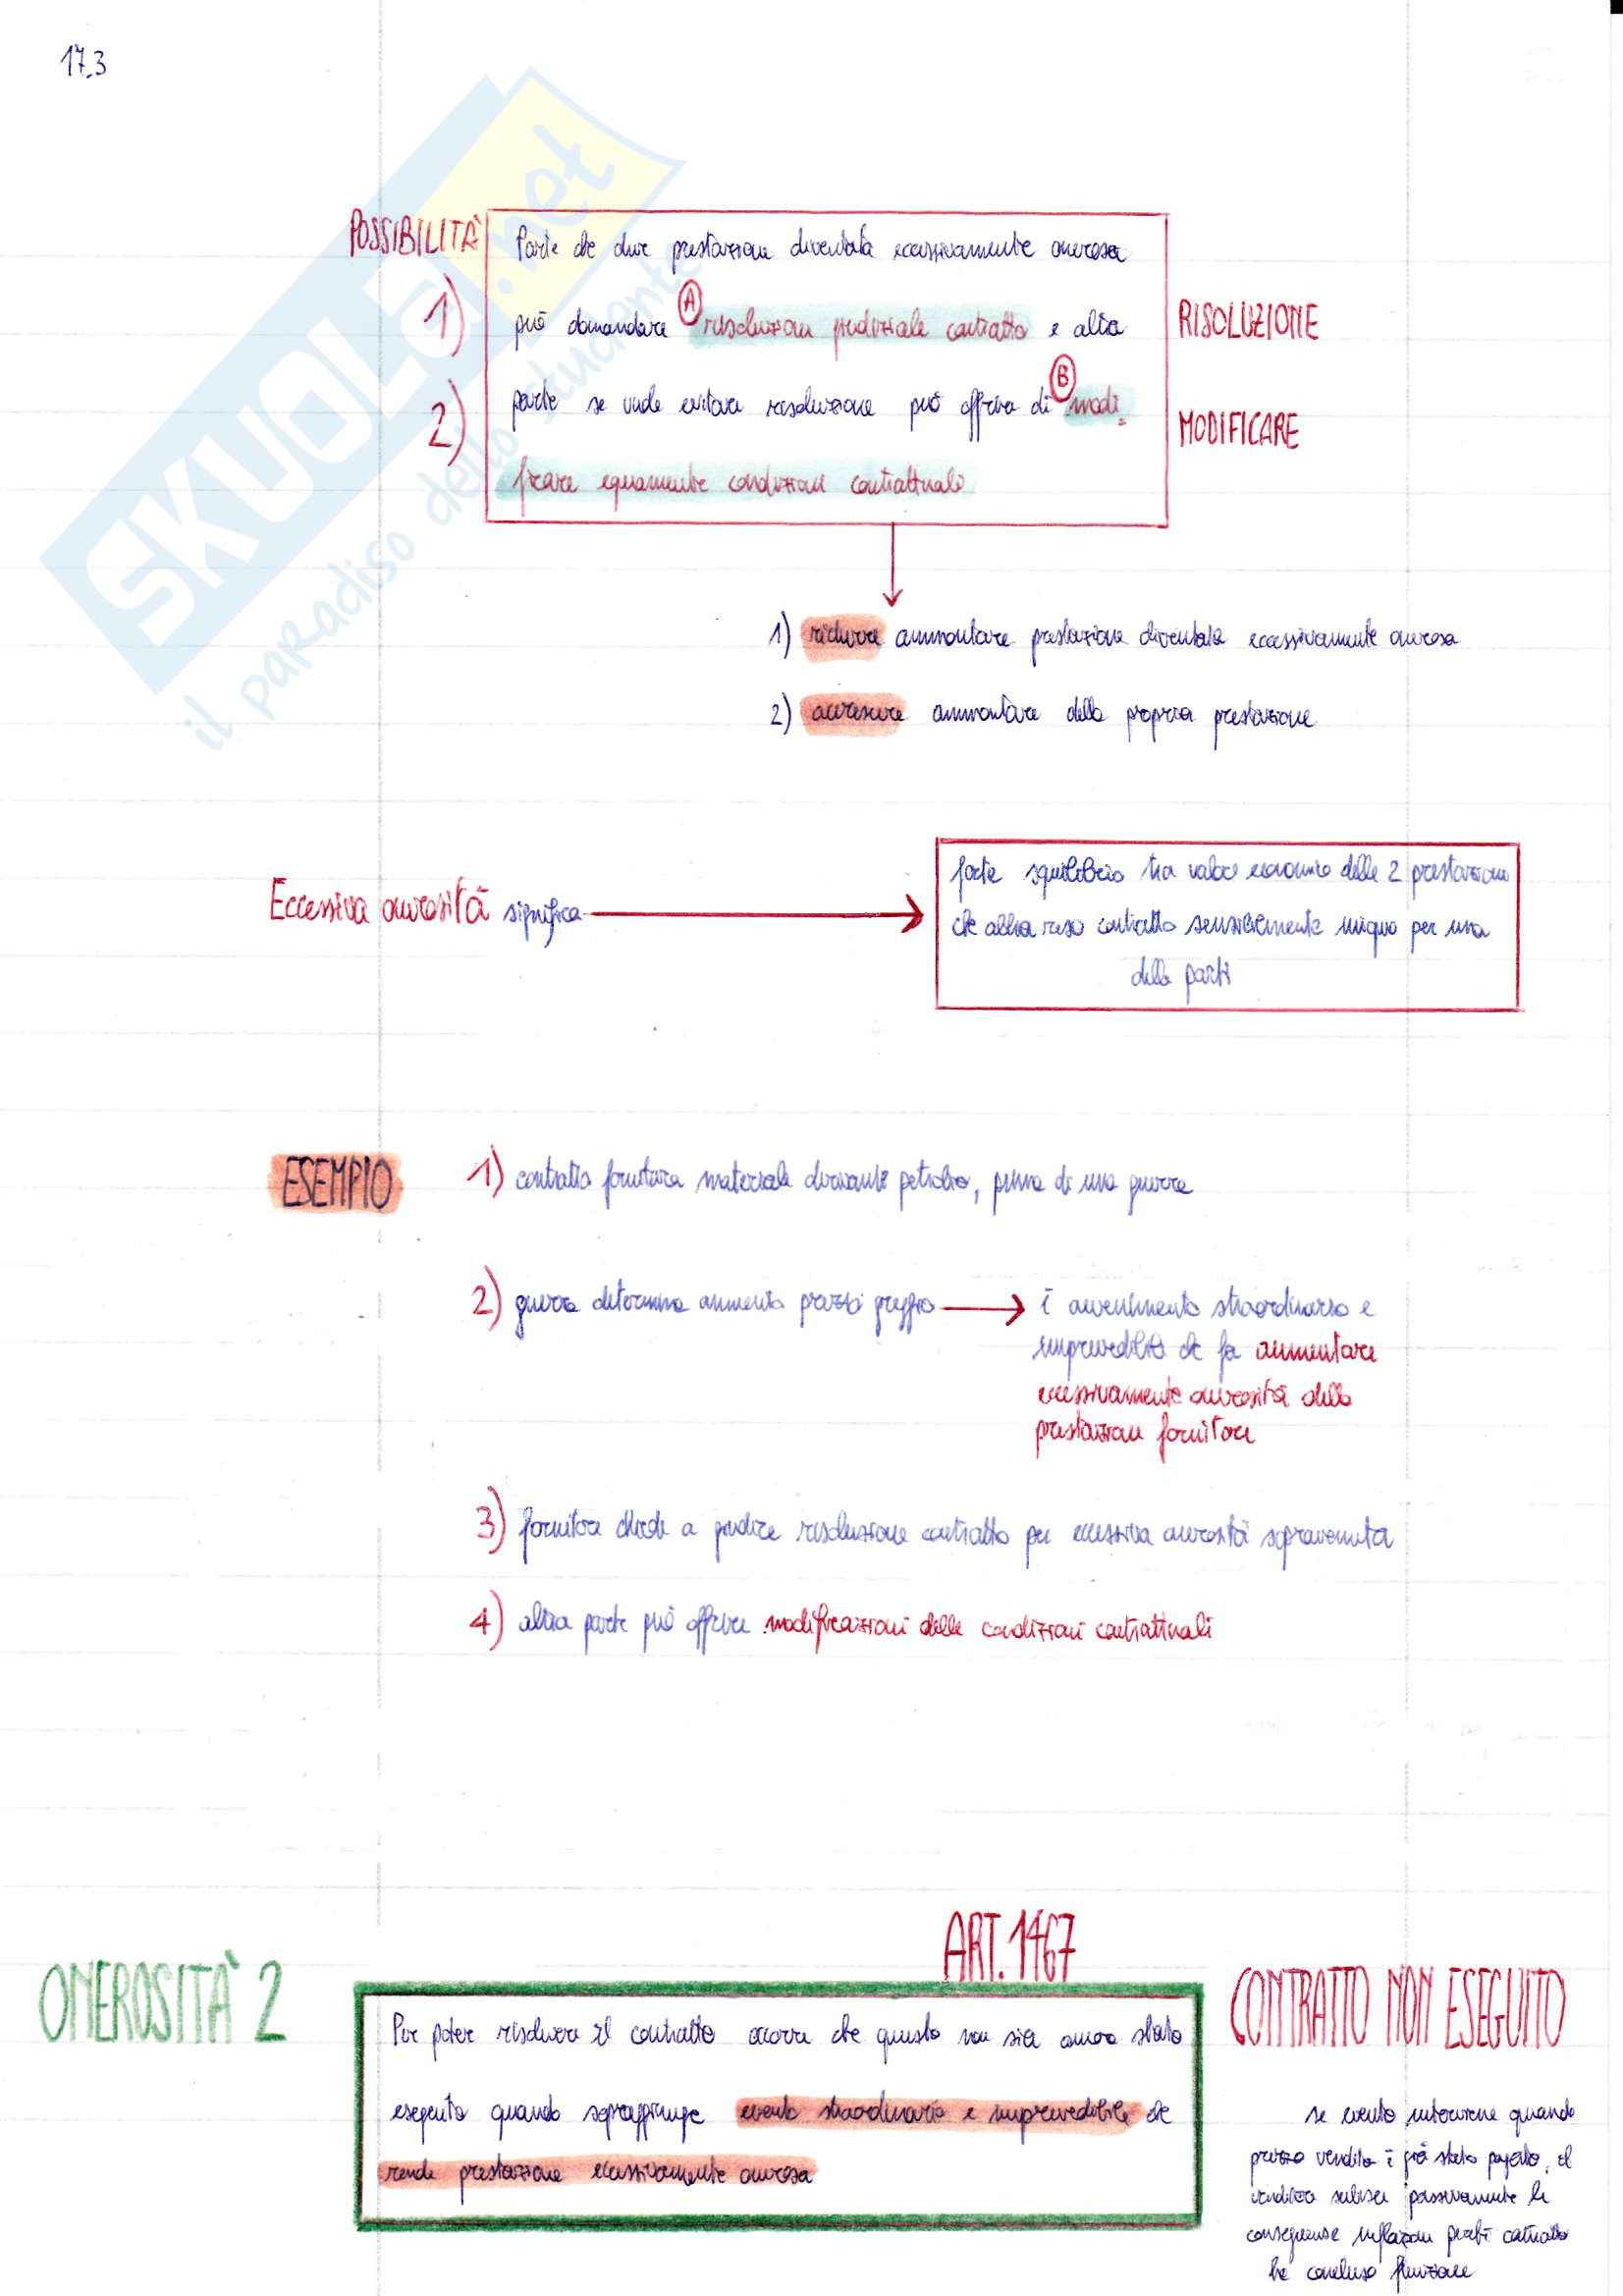 17.3
SKUOLA.net
il paradiso dello studente
POSSIBILITÀ
Parte che deve prestazione diventata eccessivamente onerosa
1) può domandare A risoluzione giudiziale contratto e altra RISOLUZIONE
2) parte se vuole evitare risoluzione può offrire di B modi= MODIFICARE
ficare equamente condizioni contrattuali
1) ridurre ammontare prestazione diventata eccessivamente onerosa
2) accrescere ammontare della propria prestazione
Eccessiva onerosità significa
forte squilibrio tra valore economico delle 2 prestazioni
che abbia reso contratto sensibilmente iniquo per una
delle parti
ESEMPIO
1) contratto fornitura materiale derivante petrolio, prima di una guerra
2) guerra determina aumento prezzi greggio
è avvenimento straordinario e
imprevedibile che fa aumentare
eccessivamente onerosità della
prestazione fornitore
3) fornitore chiede a giudice risoluzione contratto per eccessiva onerosità sopravvenuta
4) altra parte può offrire modificazioni delle condizioni contrattuali
ART. 1467
ONEROSITÀ 2
Per poter risolvere il contratto occorre che questo non sia ancora stato
eseguito quando sopraggiunge evento straordinario e imprevedibile che
rende prestazione eccessivamente onerosa
CONTRATTO NON ESEGUITO
se evento interviene quando
prezzo vendita è già stato pagato, il
venditore subisce passivamente le
conseguenze inflazione perché contratto
ha concluso funzione